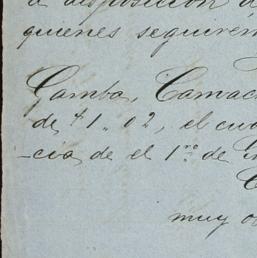 a disposición d
quienes seguirem
Gamba, Camac
de $1.02, el cua
-cia, de el 1ro de
muy o